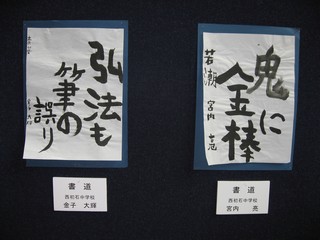 弘法も
筆の
誤り
書道
西初石中学校
金子 大輝
鬼に
金棒
若潮
宮内 亮
書道
西初石中学校
宮内 亮